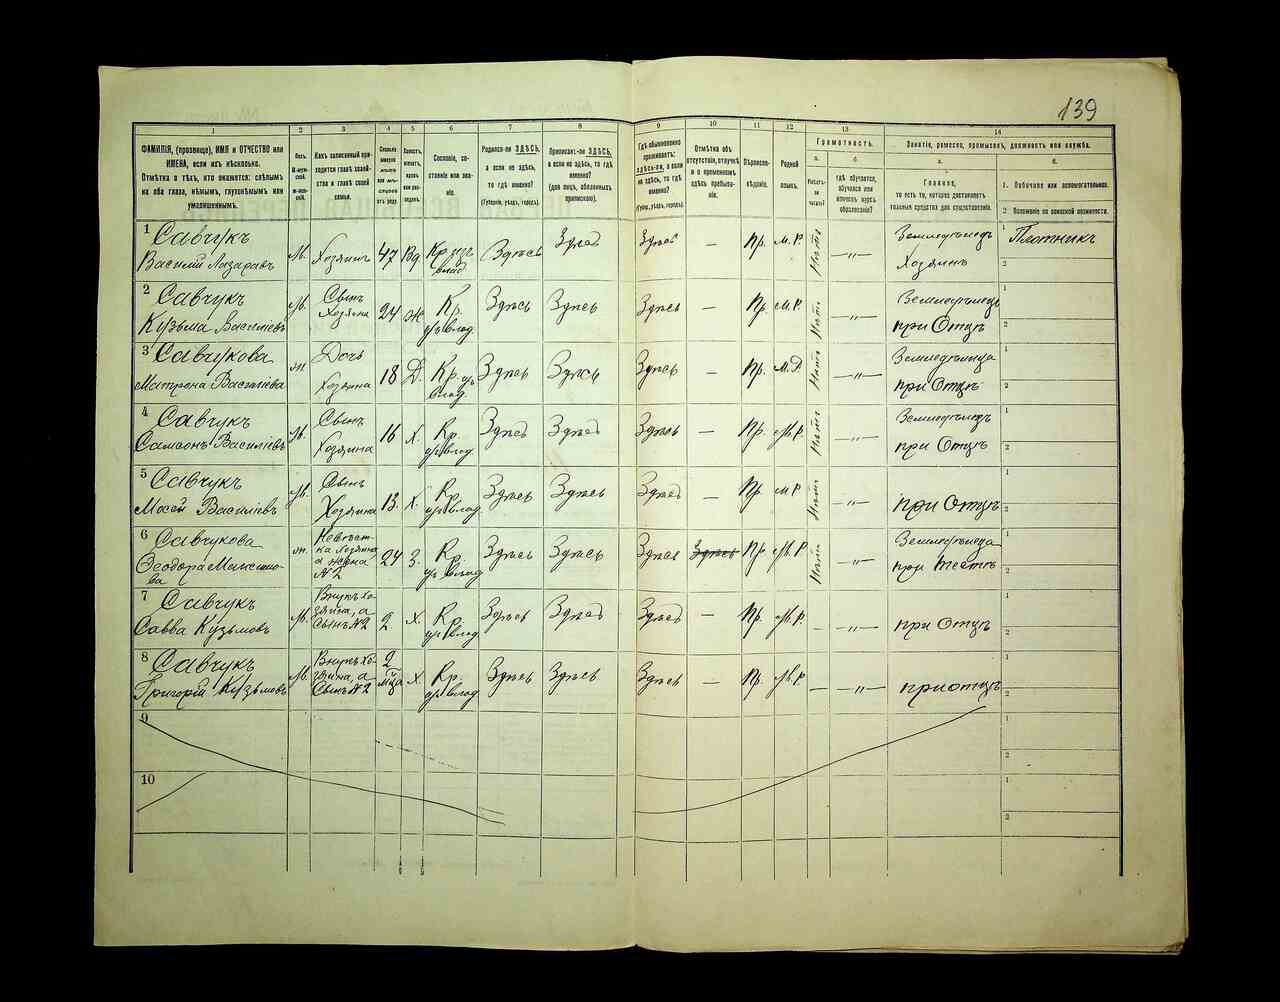 139
1
2
3
4
5
6
7
8
9
10
11
12
13
14
ФАМИЛІЯ, (прозвище), ИМЯ и ОТЧЕСТВО или
ИМЕНА, если ихъ нѣсколько.
Отмѣтка о тѣхъ, кто окажется: слѣпымъ
на оба глаза, нѣмымъ, глухонѣмымъ или
умалишеннымъ.
Полъ.
М-мужской.
Ж-женской.
Какъ записанный приходится
главѣ хозяйства
и главѣ своей
семьи.
Сословіе, состояніе
или званіе.
Родился-ли ЗДѢСЬ,
а если не здѣсь,
то гдѣ именно?
(Губернія, уѣздъ, городъ).
Приписанъ-ли ЗДѢСЬ,
а если не здѣсь, то гдѣ
именно?
(для лицъ, обязанныхъ
припискою).
Гдѣ обыкновенно
проживаетъ:
здѣсь-ли, а если
не здѣсь, то гдѣ
именно?
(Губер., уѣздъ, городъ).
Отмѣтка объ
отсутствіи, отлучкѣ
и о временномъ
здѣсь пребываніи.
Вѣроисповѣданіе.
Родной
языкъ.
Грамотность.
а.
Умѣетъ-ли
читать?
б.
гдѣ обучается,
обучался или
кончилъ курсъ
образованія?
Занятіе, ремесло, промыселъ, должность или служба.
а.
Главное,
то есть то, которое доставляетъ
главныя средства для существованія.
б.
1. Побочное или вспомогательное.
2 Положеніе по воинской повинности.
1 Савчукъ
Василій Лазаревъ
М. Хозяинъ 47 Вд Кр. изъ влад. Здѣсь Здѣсь Здѣсь — Пр. М.Р. Нѣтъ —"— Земледѣлецъ Хозяинъ 1 Плотникъ 2
2 Савчукъ
Кузьма Василіевъ
М. Сынъ Хозяина 24 Ж Кр. изъ влад. Здѣсь Здѣсь Здѣсь — Пр М.Р. Нѣтъ —"— Земледѣлецъ при Отцѣ 1 2
3 Савчукова
Матрена Василіева
ж Дочь Хозяина 18 Д. Кр. изъ влад. Здѣсь Здѣсь Здѣсь — Пр М.Р. Нѣтъ —"— Земледѣлица при Отцѣ 1 2
4 Савчукъ
Самсонъ Василіевъ
М. Сынъ Хозяина 16 Х. Кр. изъ влад. Здѣсь Здѣсь Здѣсь — Пр. М.Р. Нѣтъ —"— Земледѣлецъ при Отцѣ 1 2
5 Савчукъ
Мосей Василіевъ
М. Сынъ Хозяина 13. Х. Кр. изъ влад. Здѣсь Здѣсь Здѣсь — Пр М.Р. Нѣтъ —"— при Отцѣ 1 2
6 Савчукова
Ѳеодора Максимова
ж. Невѣстка хозяина а жена №2 24 З. Кр. изъ влад. Здѣсь Здѣсь Здѣсь Здѣсь Пр М.Р. Нѣтъ —"— Земледѣлица при Тестѣ 1 2
7 Савчукъ
Савва Кузьмовъ
М. Внукъ хозяина, а Сынъ №2 2 Х. Кр. изъ влад. Здѣсь Здѣсь Здѣсь — Пр. М.Р. — —"— при Отцѣ 1 2
8 Савчукъ
Григорій Кузьмовъ
М. Внукъ хозяина, а Сынъ №2 2 м-ца Х Кр. изъ влад. Здѣсь Здѣсь Здѣсь — Пр. М.Р. — —"— при отцѣ 1 2
9
1
2
10
1
2